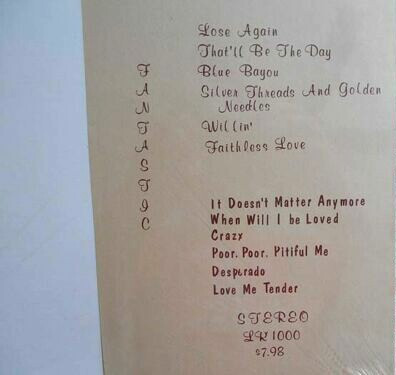 Lose Again
That'll Be The Day
Blue Bayou
Silver Threads And Golden
Needles
Willin'
Faithless Love
FANTASTIC
It Doesn't Matter Anymore
When Will I be Loved
Crazy
Poor, Poor, Pitiful Me
Desperado
Love Me Tender
STEREO
LR 1000
$7.98